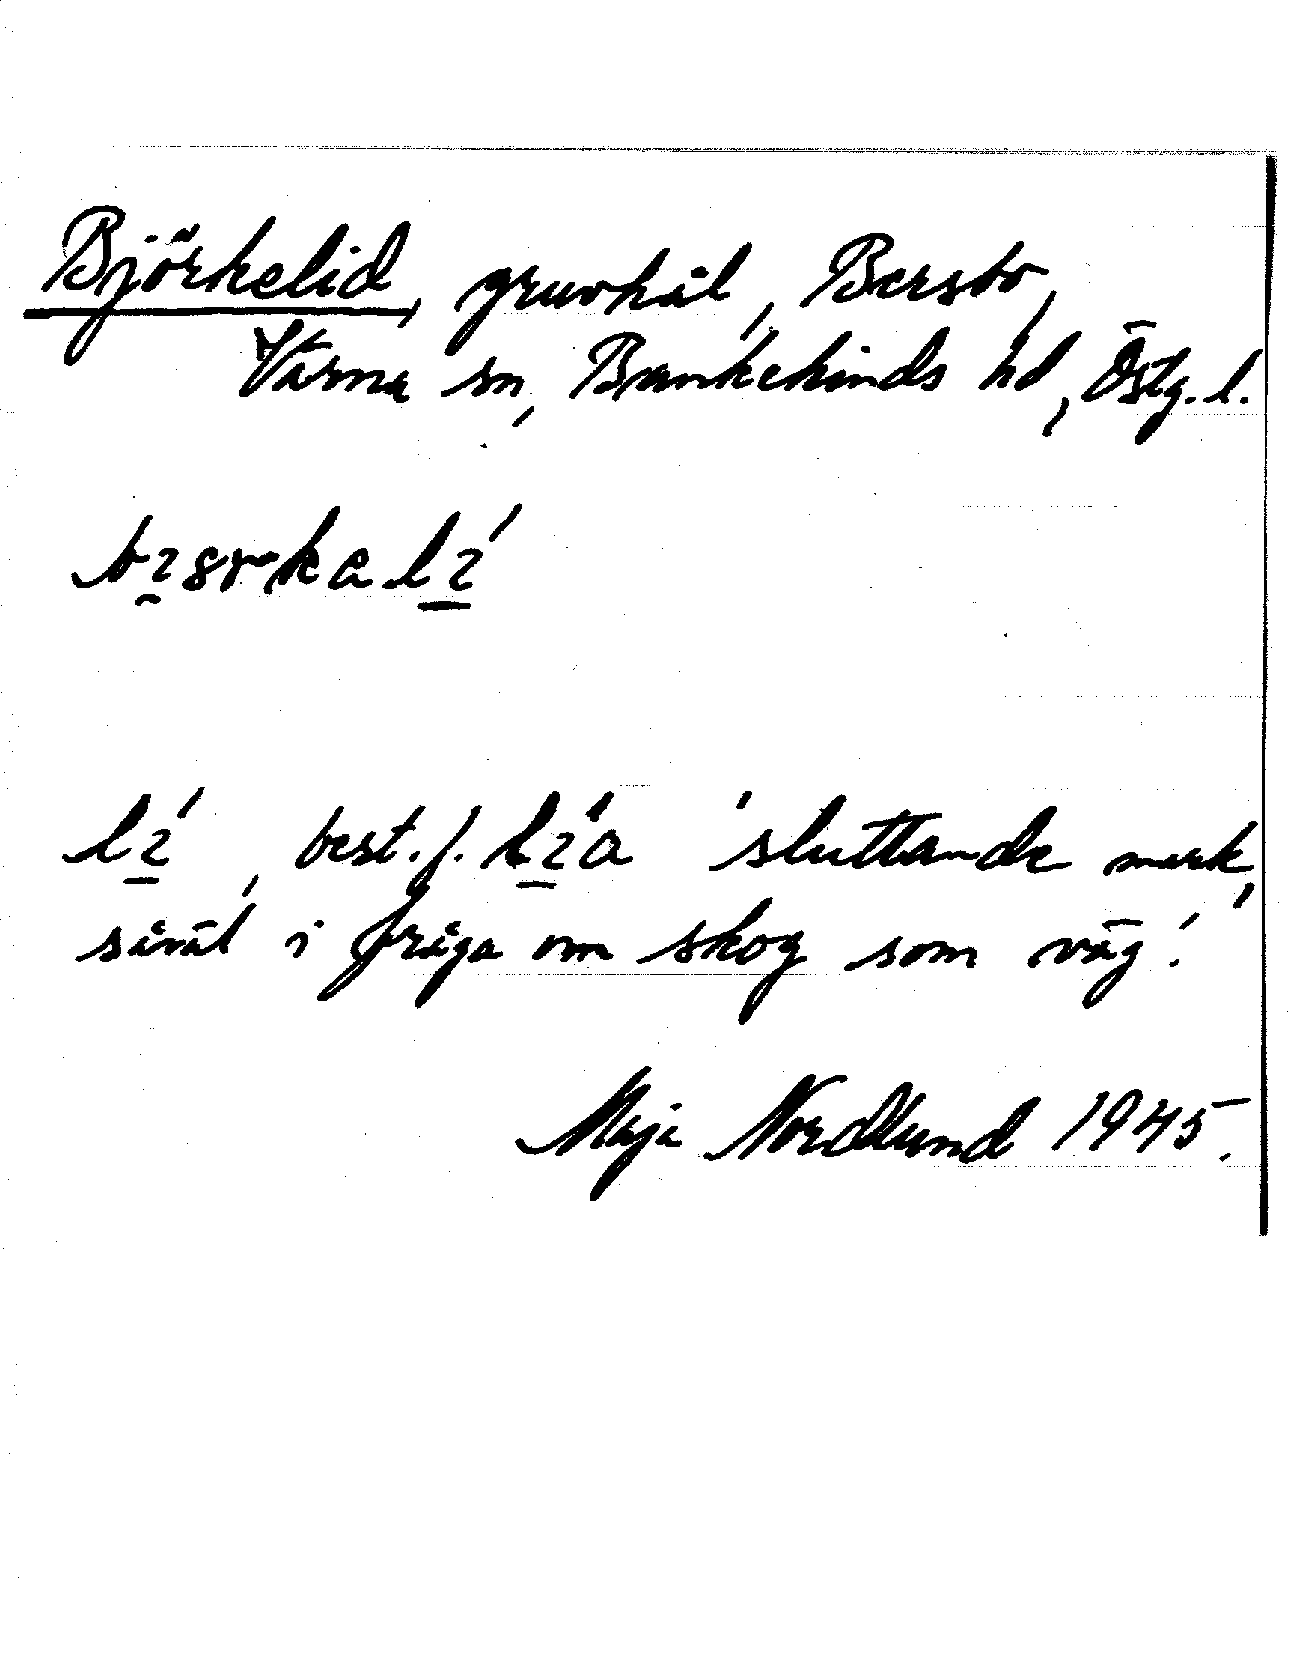 Björkelid, gruvhål, Bersbo,
Värna sn, Bankekinds hd, Östg. l.
lí, best. f. lía 'sluttande mark,
såväl i fråga om skog som väg'.
Maja Nordlund 1945.